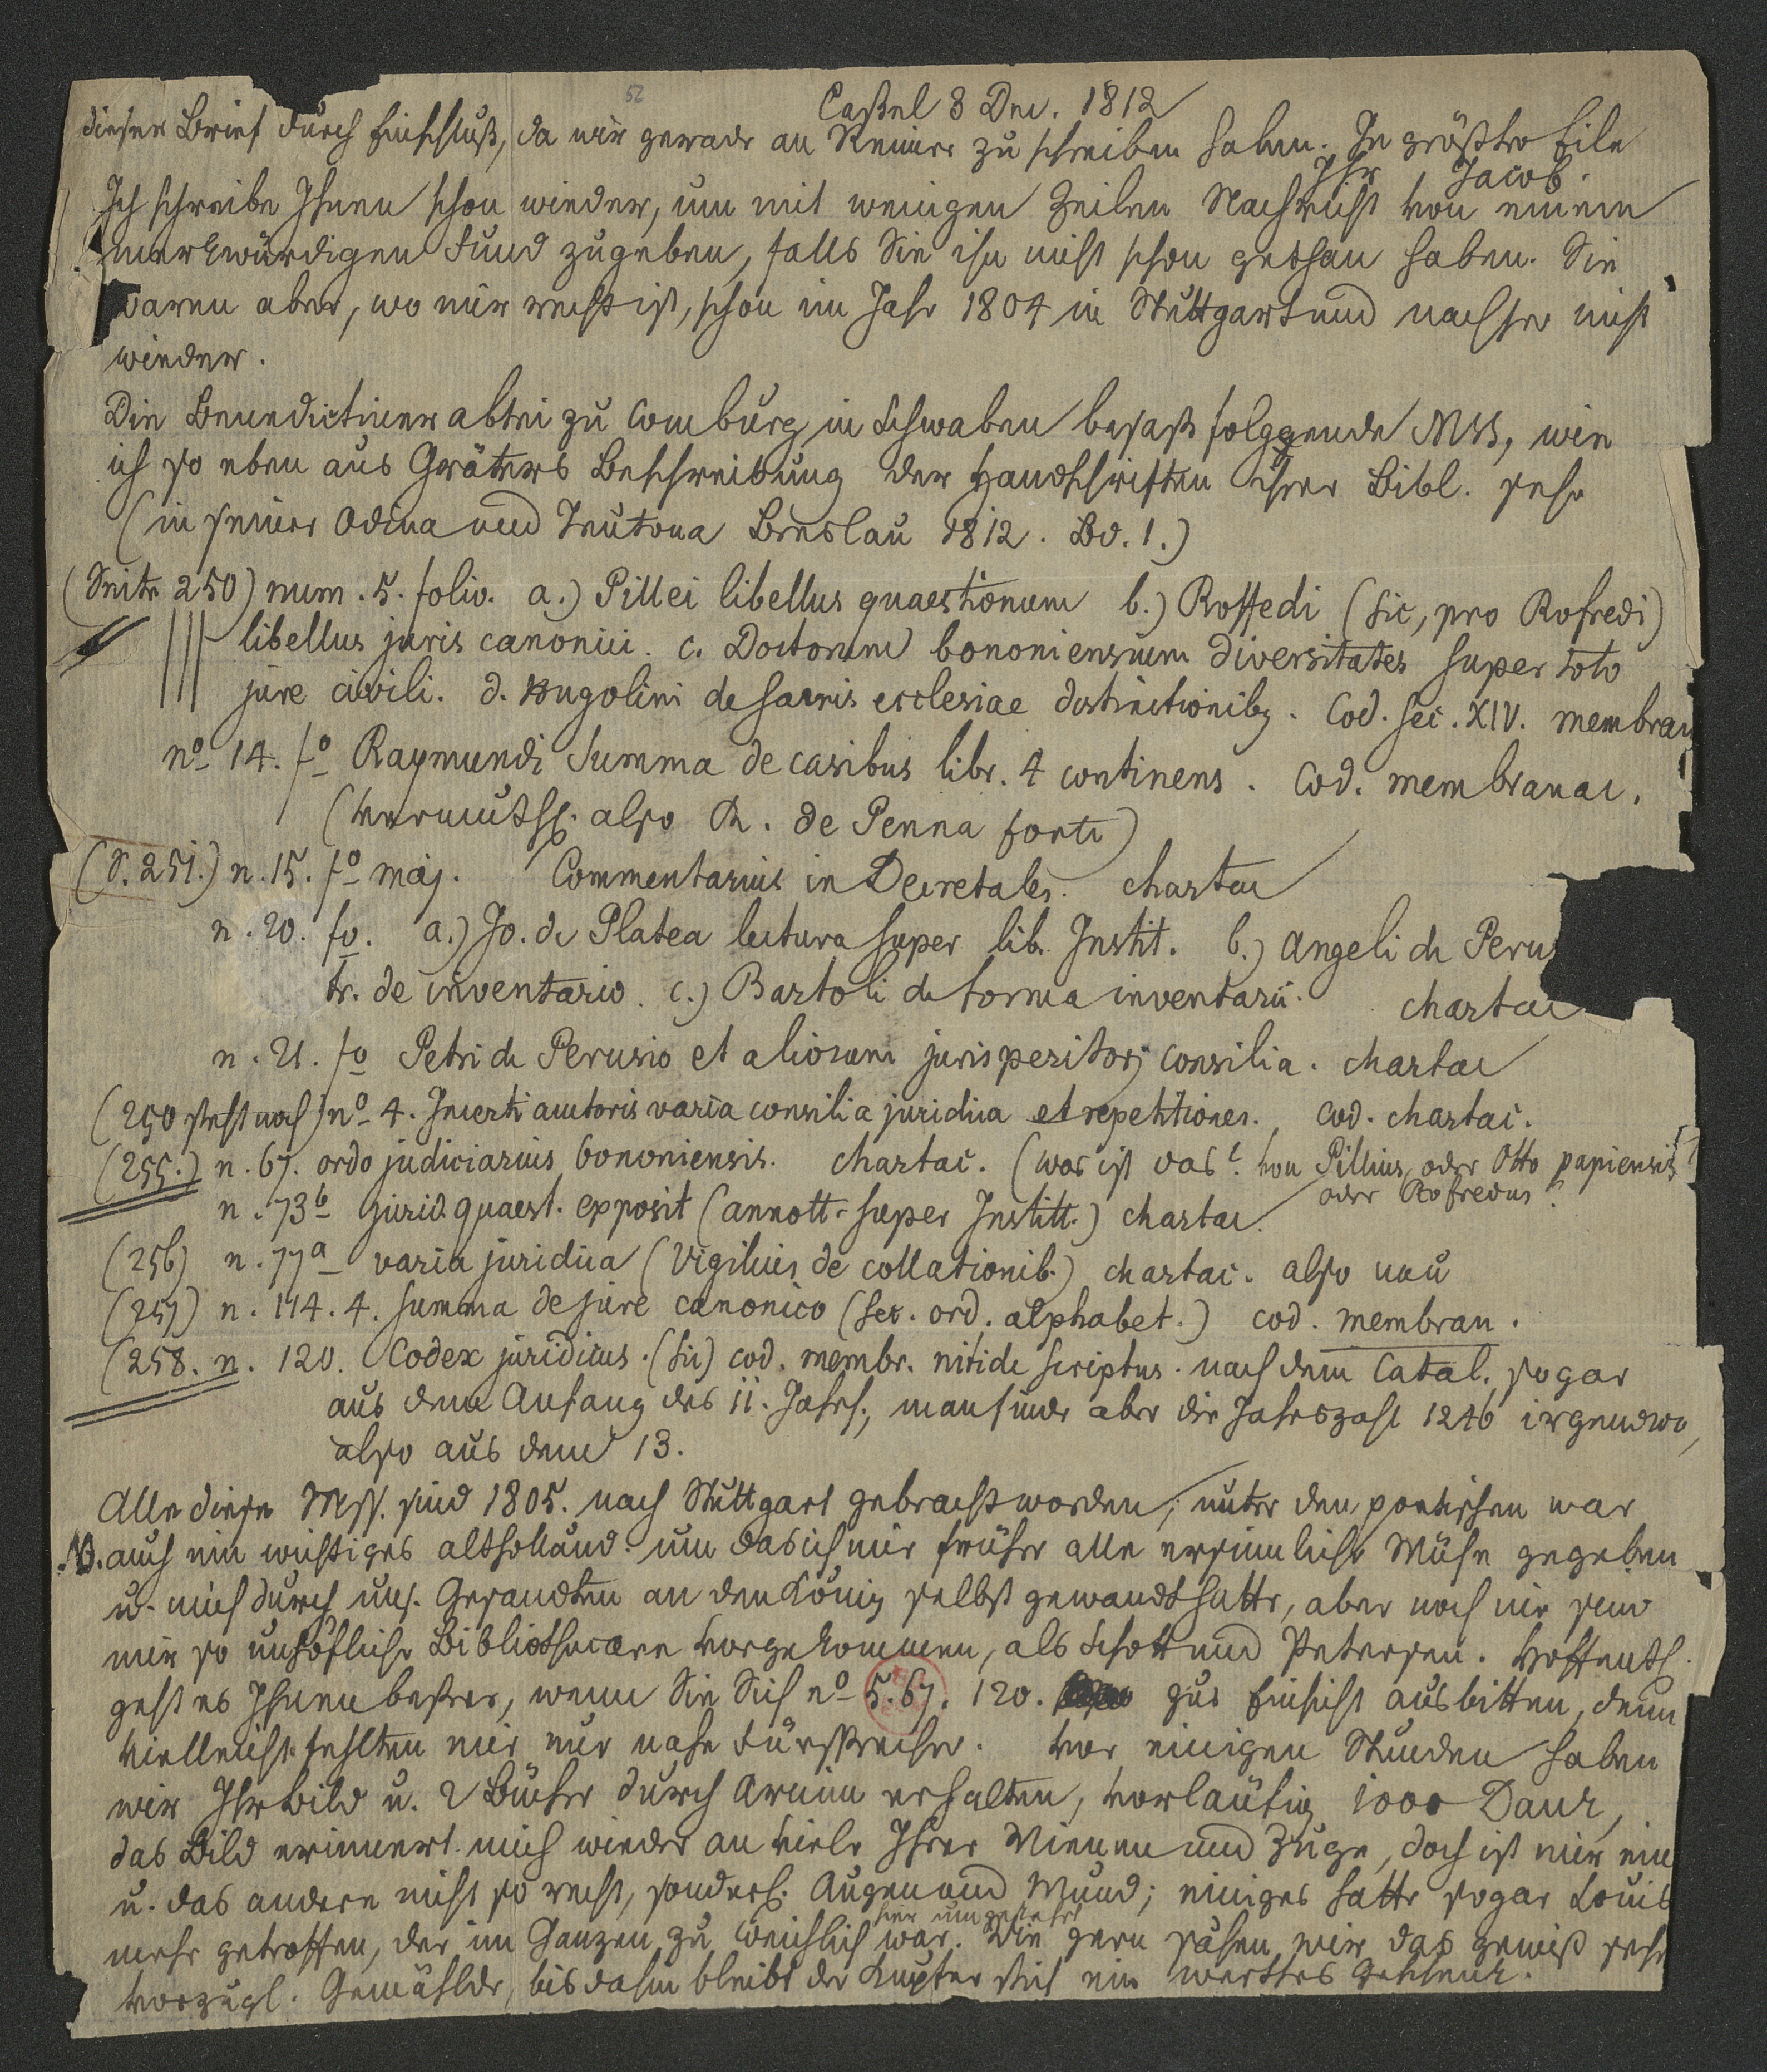 52
Caßel 3 Dec. 1812
dieser Brief durch Einschluß, da wir gerade an Reimer zu schreiben haben. In größter Eile
Ihr Jacob.
Ich schreibe Ihnen schon wieder, um mit wenigen Zeilen Nachricht von einem
merkwürdigen Fund zugeben, falls Sie ihn nicht schon gethan haben. Sie
waren aber, wo mir recht ist, schon im Jahr 1804 in Stuttgart und nachher nicht
wieder.
Die Benedictiner abtei zu Comburg in Schwaben besaß folggende MSS, wie
ich so eben aus Gräters Beschreibung der Handschriften ihrer Bibl. sehe
(in seiner Odina und Teutona Breslau 1812. Bd. 1.)
(Seite 250) num. 5. folio. a.) Pillei libellus quaestionum b.) Roffedi (sic, pro Rofredi)
libellus juris canonici. c. Doctorum bononiensium diversitates super toto
jure civili. d. Hugolini de sacris ecclesiae distinctionibq. Cod. sec. XIV. membran
no 14. fo Raymundi Summa de casibus libr. 4 continens. Cod. membranac.
(vermuthl. also R. de Penna forte)
(S. 251.) n. 15. fo maj. Commentarius in Decretales. chartac
n. 20. fo. a.) Jo. de Platea lectura super lib. Instit. b.) Angeli de Perus
tr. de inventario. c.) Bartoli de forma inventarii. chartac
n. 21. fo Petri de Perusio et aliorum jurisperitor. consilia. chartac
(250 steht noch) no 4. Incerti auctoris varia consilia juridica et repetitiones. cod. chartac.
(255.) n. 67. ordo judiciarius bononiensis. chartac. (was ist das? von Pillius, oder Otto papiensis?
oder Rofredus?
n. 73b jurid. quaest. exposit (annott. super Institt.) chartac.
(256) n. 77a varia juridica (Vigilius de collationib.) chartac. also neu
(257) n. 114. 4. summa de jure canonico (sec. ord. alphabet.) cod. membran.
(258. n. 120. Codex juridicus. (sic) cod. membr. nitide scriptus. nach dem Catal. sogar
aus dem Anfang des 11. Jahrh., man finde aber die Jahrszahl 1246 irgendwo,
also aus dem 13.
Alle diese Mss. sind 1805. nach Stuttgart gebracht worden, unter den poetischen war
NB. auch ein wichtiges altholländ. um das ich mir früher alle ersinnliche Mühe gegeben
u. mich durch uns. Gesandten an den König selbst gewandt hatte, aber noch nie sind
mir so unhöfliche Bibliothecare vorgekommen, als Schott und Petersen. Hoffentl.
geht es Ihnen beßer, wenn Sie Sich no 5. 67. 120. zur Einsicht ausbitten, denn
vielleicht fehlten mir nur nahe Fürsprecher. Vor einigen Stunden haben
wir Ihr Bild u. 2 Bücher durch Arnim erhalten, vorläufig 1000 Dank,
das Bild erinnert mich wieder an viele Ihrer Mienen und Züge, doch ist mir ein
u. das andere nicht so recht, sonderl. Augen und Mund; einiges hatte sogar Louis
hier umgekehrt
mehr getroffen, der im Ganzen zu weichlich war. Wie gern sähen wir das gewiß sehr
vorzügl. Gemählde, bis dahin bleibt der Kupferstich ein werthes Geschenk.